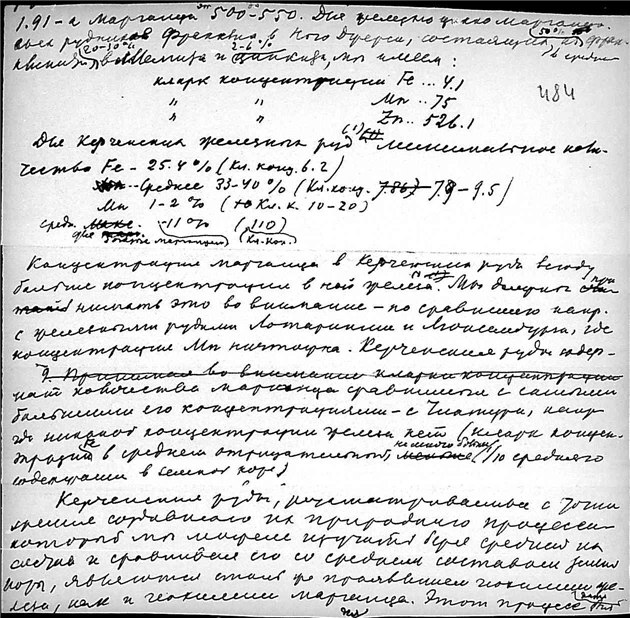 1.91 - а марганца 500-550. Для железно цинко марганцо-
вых рудников Франклина в Нью Джерси, состоящих из фран-
клинита и цинкита, мы имеем:
20-30% 2-6% 50% в среднем
кларк концентрации Fe ... 4.1
" " Mn .. 75
" " Zn .. 526.1
484
Для Керченских железных руд минимальное коли-
чество Fe - 25.4% (Кл. конц. 6.2)
Среднее 33-40% (Кл. конц. 7.867 7.9 - 9.5)
Mn 1-2% (Кл. к. 10-20)
средн. -11% (110)
для больше марганца (Кл. кон.)
Концентрация марганца в Керченских рудах всюду
больше концентрации в ней железа. Мы должны при-
нимать это во внимание - по сравнению напр.
с железными рудами Лотарингии и Люксембурга, где
концентрация Mn ничтожна. Керченские руды содер-
9. Принимая во внимание кларки концентрации
жат количества марганца сравнимые с самыми
большими его концентрациями - с Чиатура, напр.
где никакой концентрации железа нет (Кларк концен-
трации Fe в среднем отрицательный немного больше 1/10 среднего
содержания в земной коре)
Керченские руды, рассматриваемые с точки
зрения создавшего их природного процесса
который мы можем изучать беря средний их
состав и сравнивая его со средним составом земной
коры, являются столь же проявлением геохимии же-
леза, как и геохимии марганца. Этот процесс был